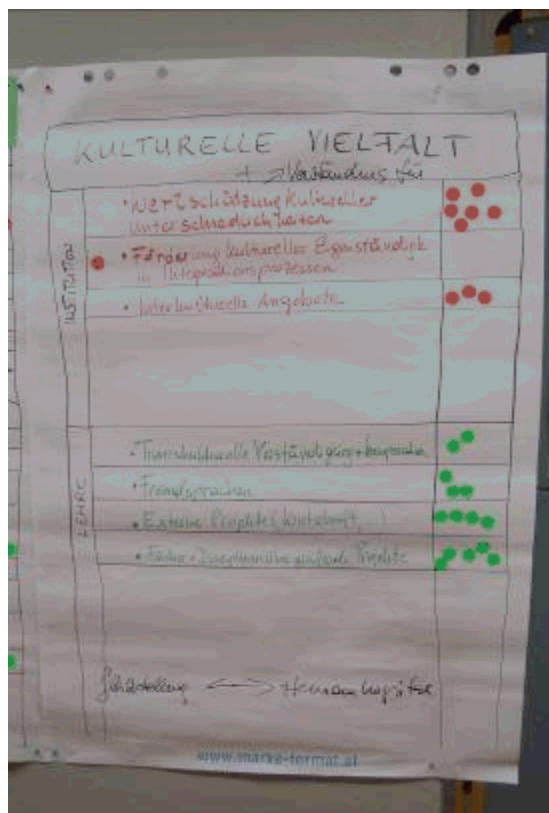 KULTURELLE VIELFALT
+ → Verständnis für
INSTITUTION
• Wertschätzung kultureller
unterschiedlichkeiten
• Förderung kultureller Eigenständigk
in Integrationsprozessen
• Interkulturelle Angebote
LEHRE
• Transkulturelle Verständigung +
• Fremdsprachen
• Externe Projekte (Wirtschaft, ...)
• Fächer + Disziplinübergreifende Projekte
←→ Humankapital
www.marke-format.at